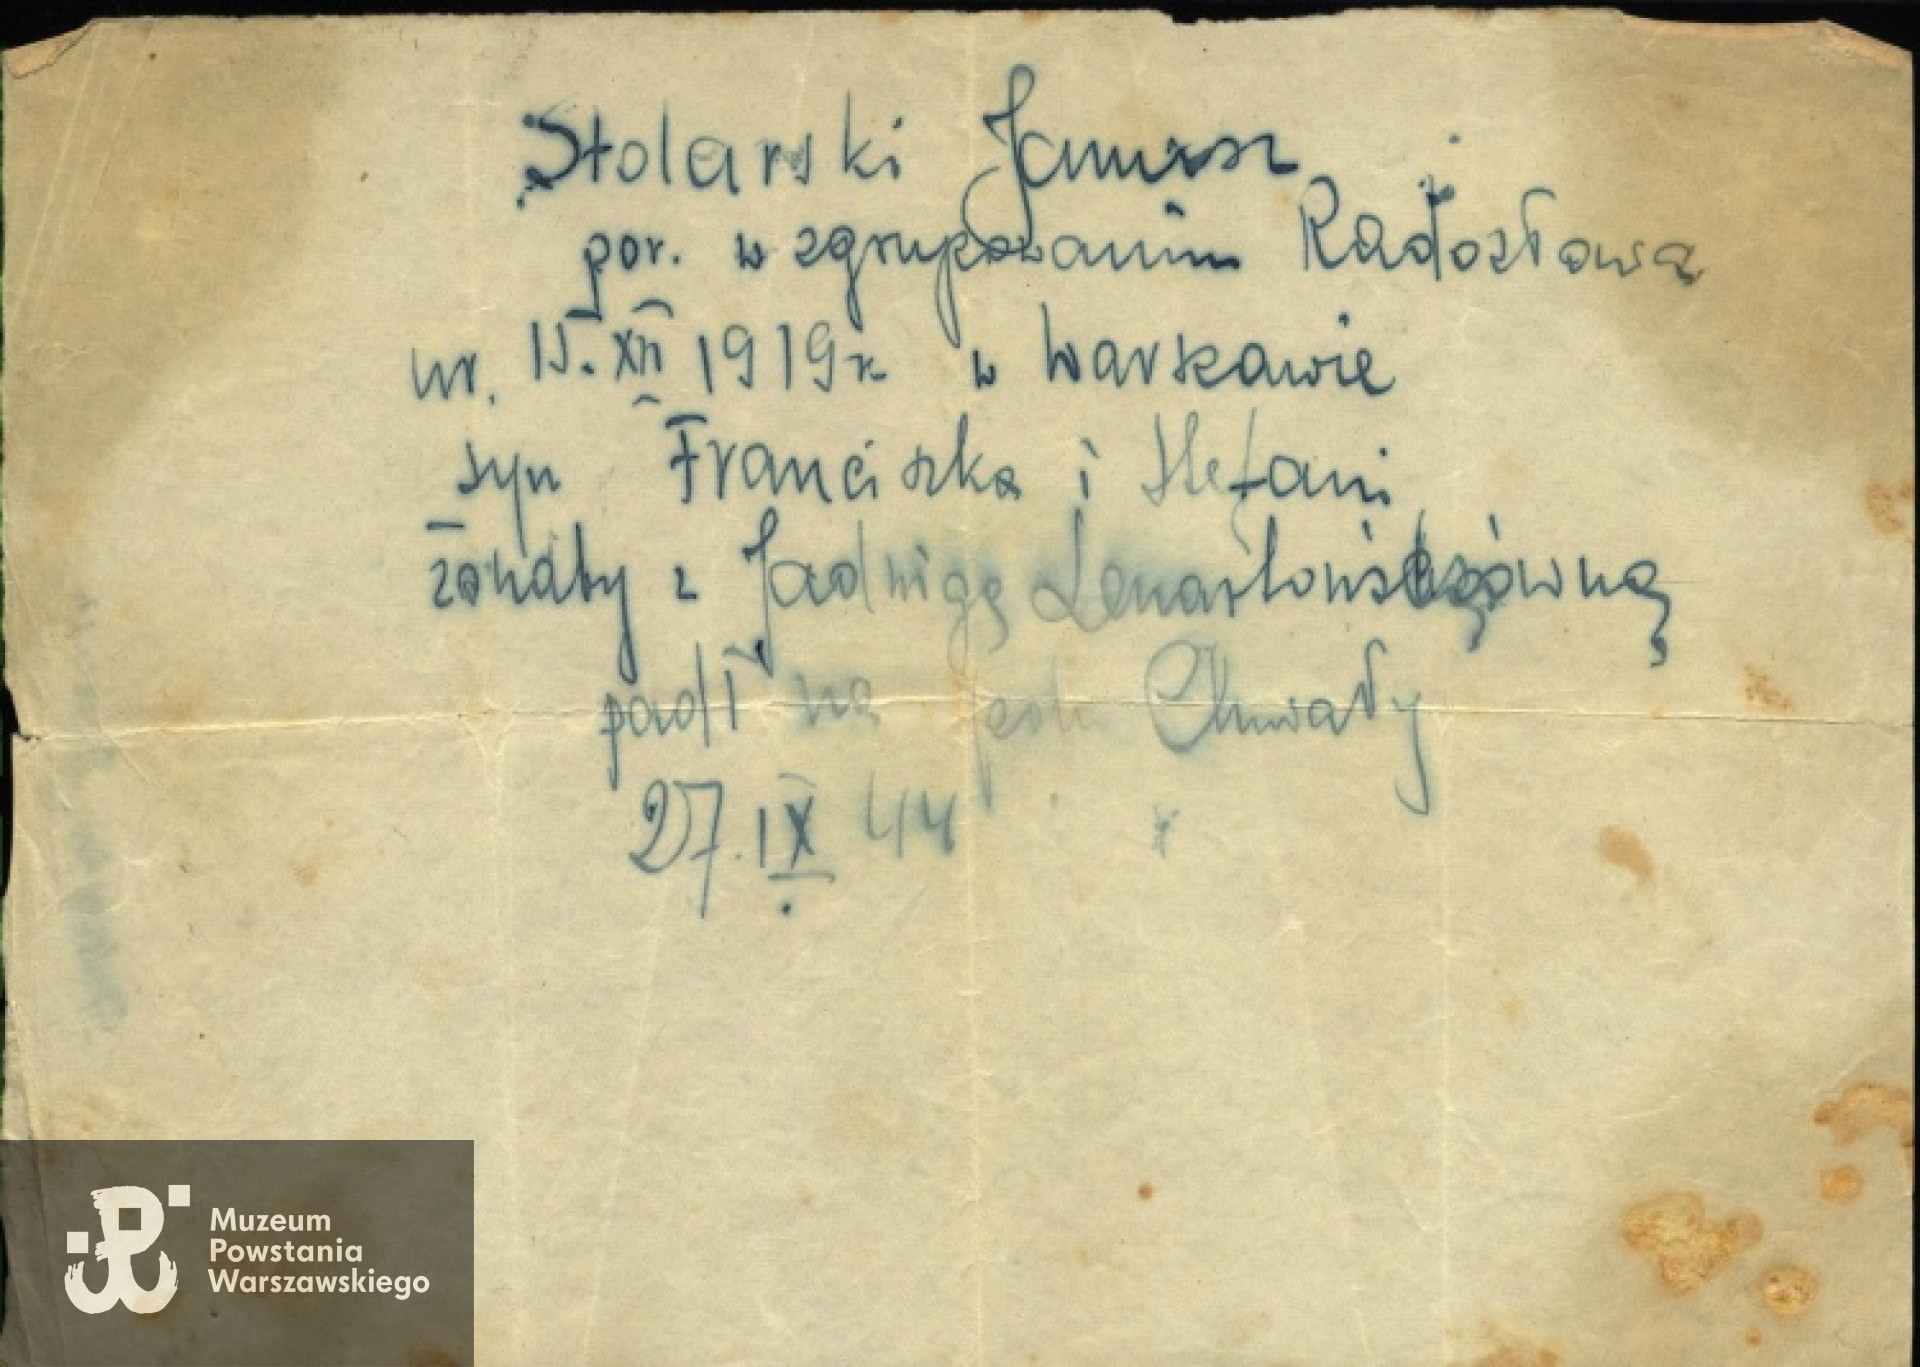 Stolarski Janusz
por. w zgrupowaniu Radosława
ur. 15. XII 1919 r w Warszawie
syn Franciszka i Stefani
żonaty z Jadwigą
padł na polu Chwały
27. IX 44
Muzeum
Powstania
Warszawskiego